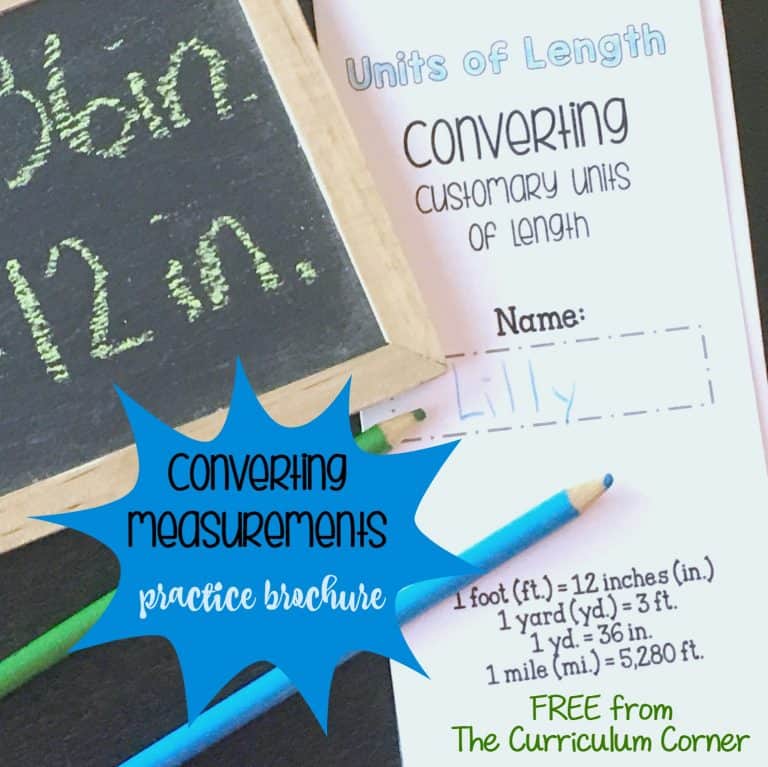 36 in.
12 in.
Units of Length
Converting
Customary Units
of Length
Name:
Lilly
Converting
Measurements
practice brochure
1 foot (ft.) = 12 inches (in.)
1 yard (yd.) = 3 ft.
1 yd. = 36 in.
1 mile (mi.) = 5,280 ft.
FREE from
The Curriculum Corner